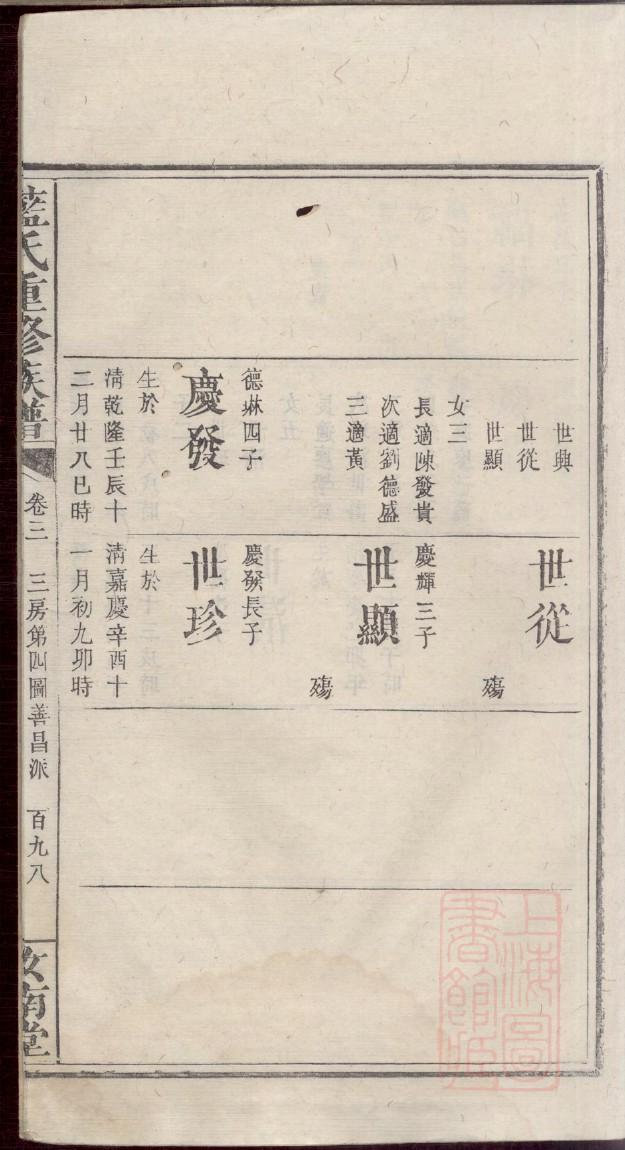 世興
世從
世顯
女三
長適陳發貴
次適劉德盛
三適黃
德㷠四子
慶發
生於
清乾隆壬辰十
二月廿八巳時
世從
殤
慶輝三子
世顯
殤
慶發長子
世珍
生於
清嘉慶辛酉十
一月初九卯時
藍氏重修族譜
卷三
三房第四圖善昌派
百九八
汝南堂
上海圖
書館藏